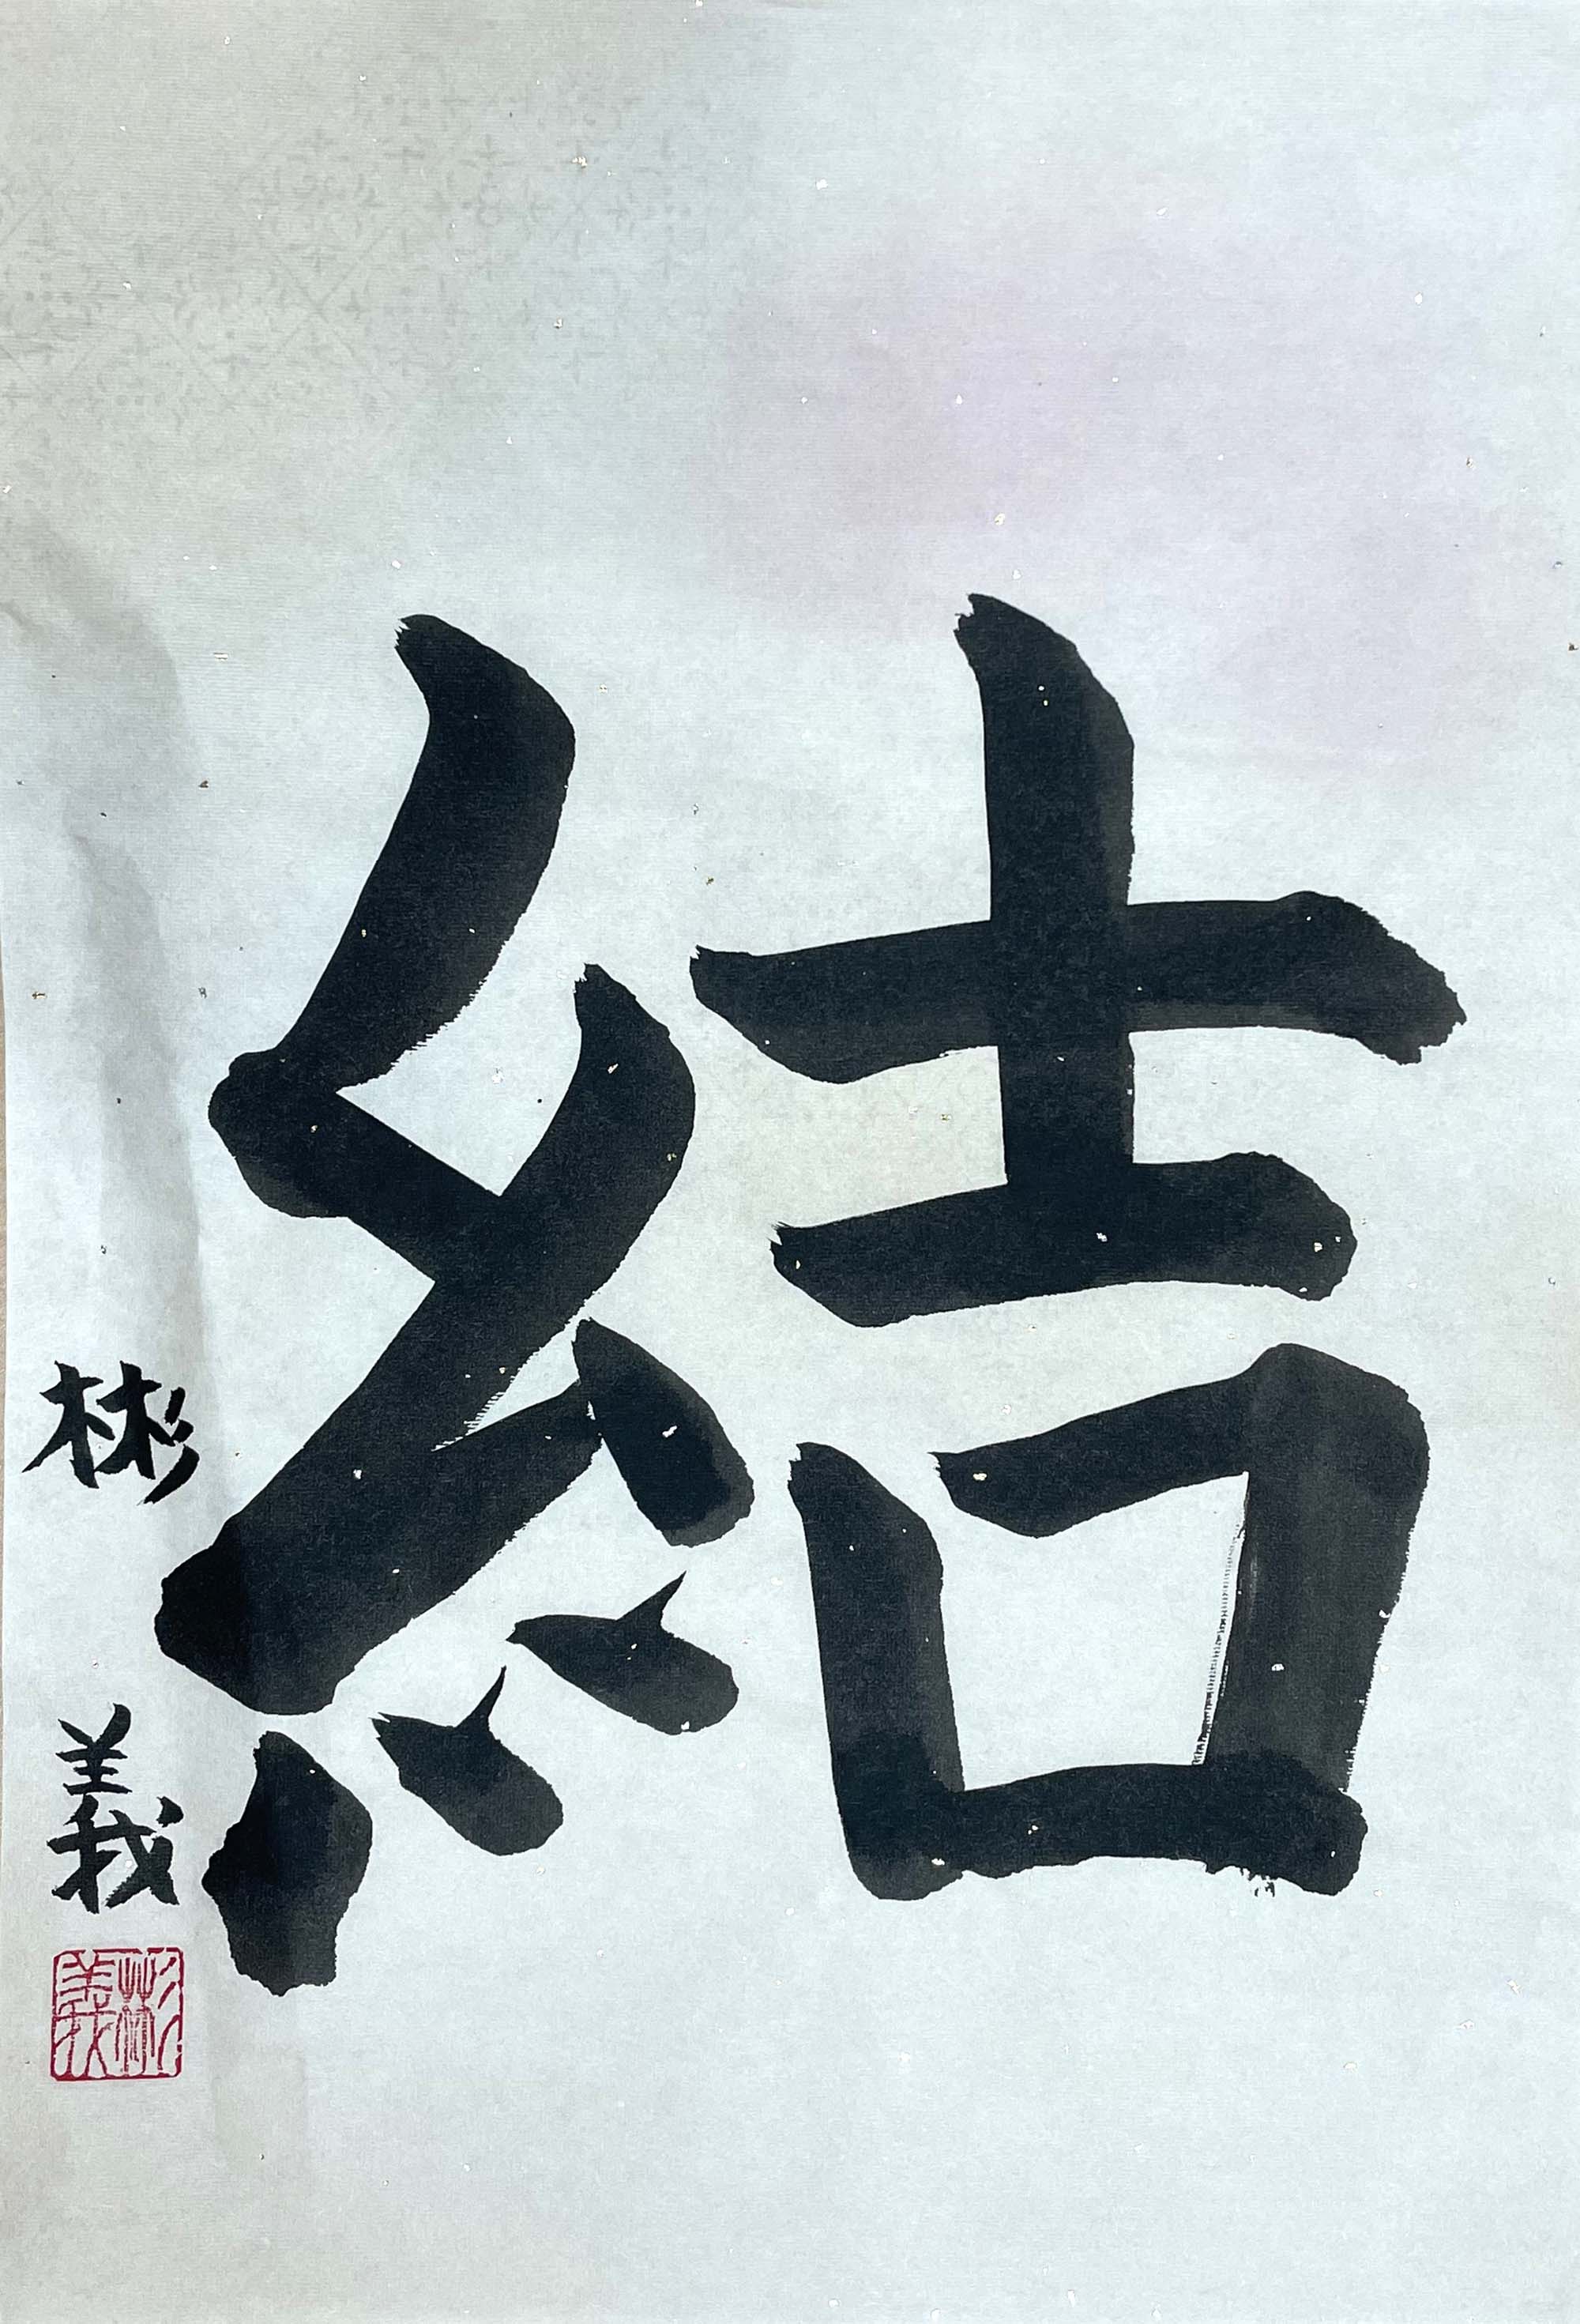 結
彬義
彬義